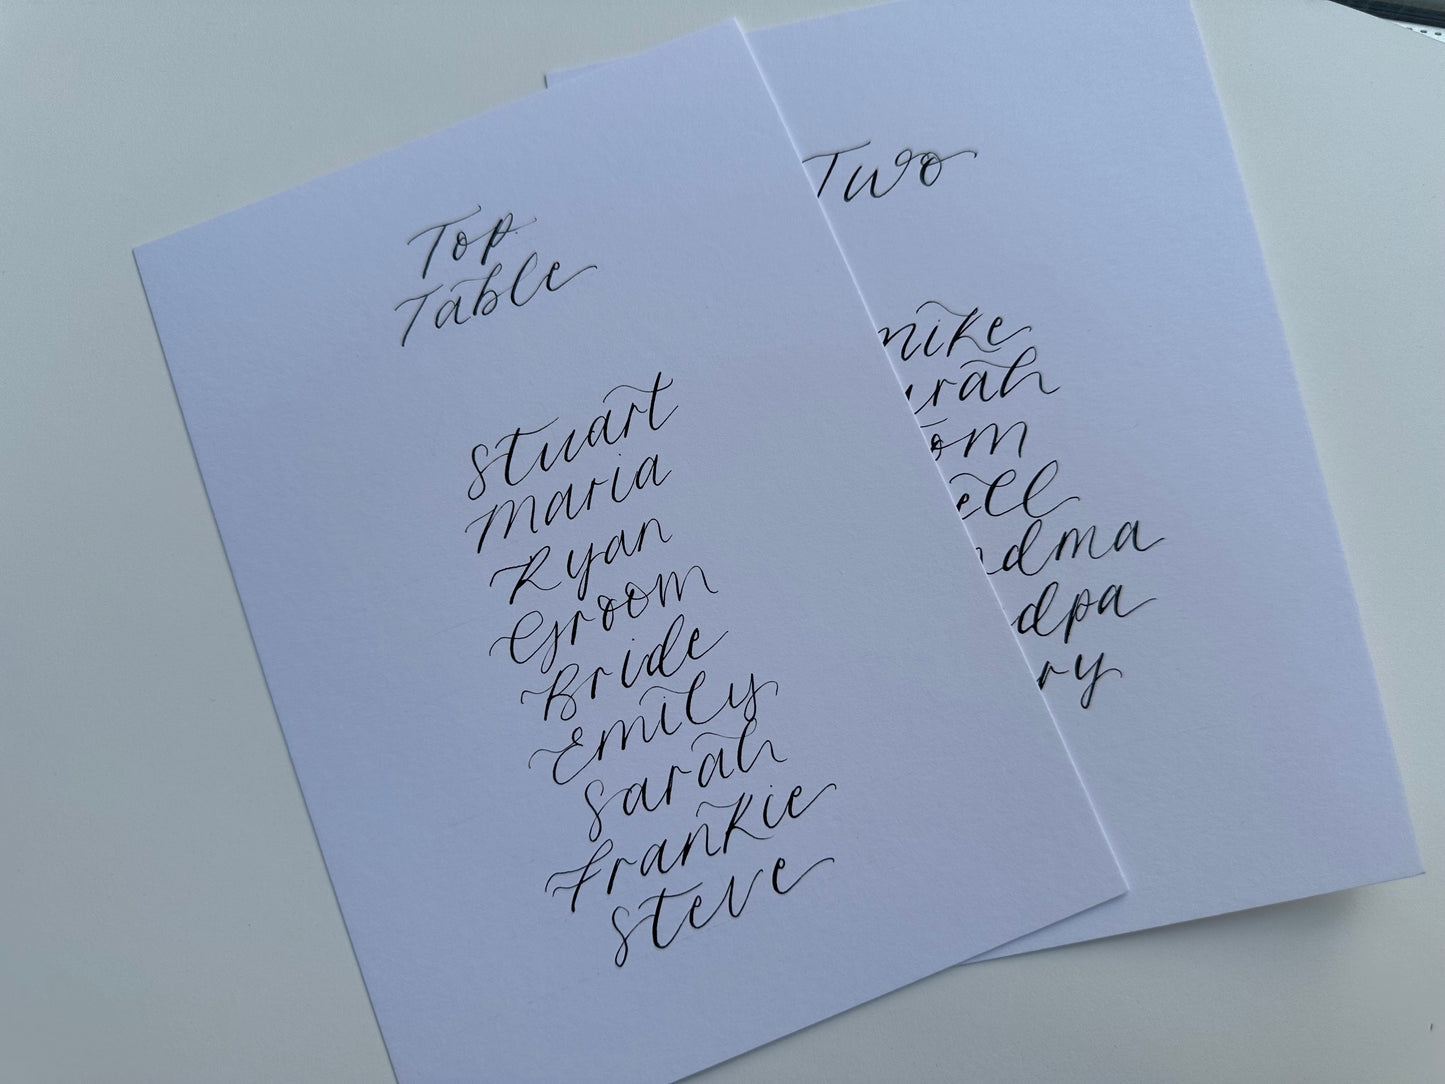 Top
Table
Stuart
Maria
Ryan
Groom
Bride
Emily
Sarah
Frankie
Steve
Two
Mike
Tom